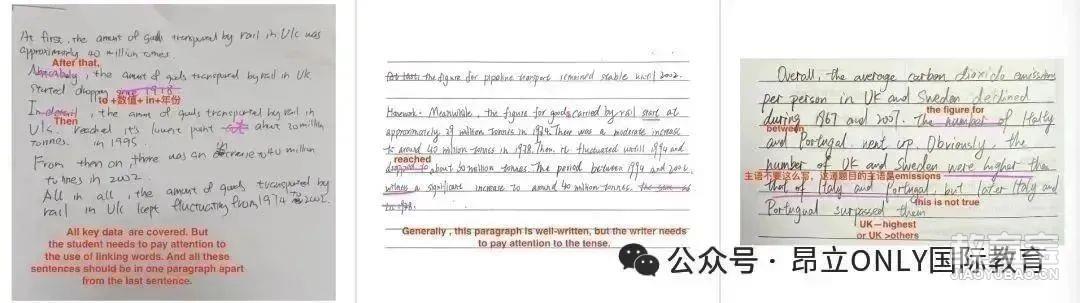 At first, the amount of goods transported by rail in UK was
approximately 40 million tonnes.
After that,
the amount of goods transported by rail in UK
started dropping since 1978
to +数值+ in+年份
In detail, the amount of goods transported by rail in
Then
UK reached it's lowest point about 20 million
tonnes. in 1995
From then on there was an increase to 40 million
tonnes in 2002.
All in all, the amount of goods transported by
rail in UK kept fluctuating from 1974 to 2002.
All key data are covered. But
the student needs to pay attention to
the use of linking words. And all these
sentences should be in one paragraph apart
from the last sentence.
the figure for pipeline transport remained stable until 2002.
Homework: Meanwhile, the figure for goods carried by rail start at
approximately 39 million tonnes in 1974. There was a moderate increase
to around 40 million tonnes in 1978. Then, it fluctuated until 1994 and
reached
dropped to about 30 million tonnes. The period between 1994 and 2002,
witness a significant increase to around 40 million tonnes.
Generally , this paragraph is well-written, but the writer needs
to pay attention to the tense.
Overall, the average carbon dioxide emissions
per person in UK and Sweden declined
the figure for
during 1967 and 2007. The number of Italy
between
and Portugal went up. Obviously, the
number of UK and Sweden were higher than
主语不要这么写，这道题目的主语是emissions
that of Italy and Portugal, but later Italy and
this is not true
Portugual surpassed them
UK—highest
or UK >others
公众号 · 昂立ONLY国际教育
JIAOYUBAO.CN